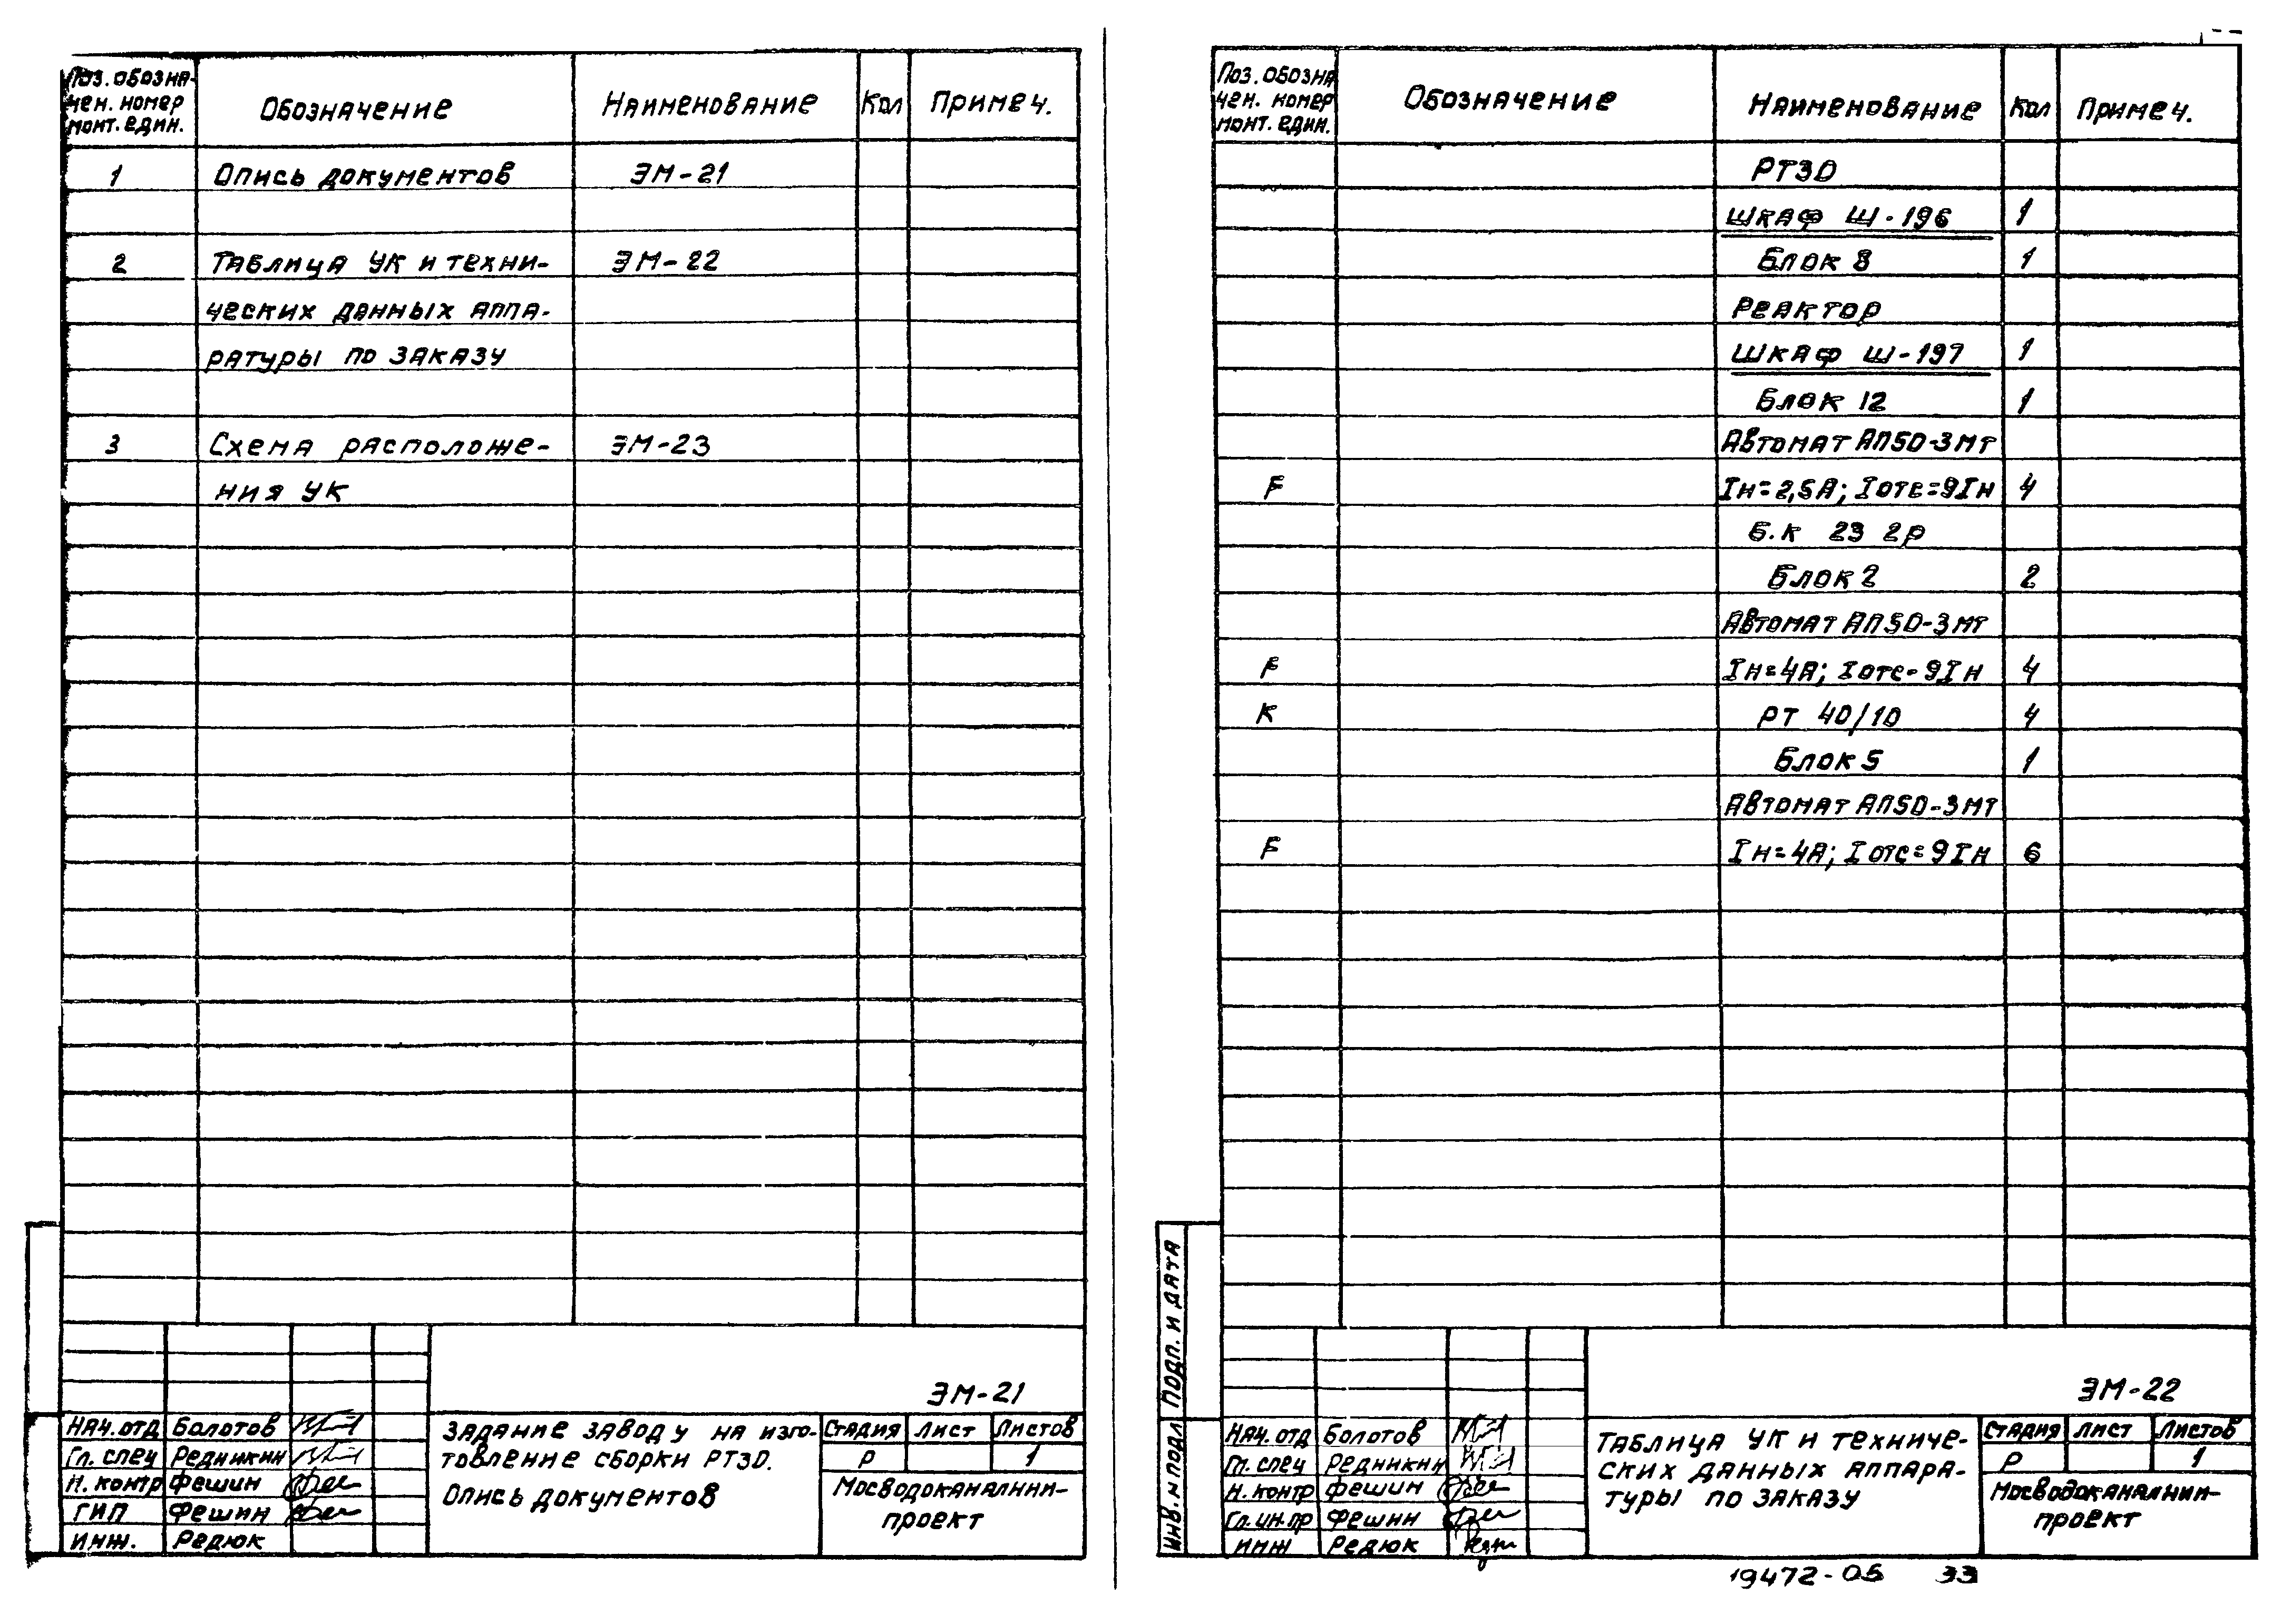 Поз. обозна-
чен. номер
монт. един.
Обозначение
Наименование
Кол
Примеч.
1 Опись документов ЭМ-21
2 Таблица УК и техни- ЭМ-22
ческих данных аппа-
ратуры по заказу
3 Схема расположе- ЭМ-23
ния УК
ЭМ-21
Нач. отд Болотов
Гл. спец Редникин
Н. контр Фешин
ГИП Фешин
инж. Редюк
Задание заводу на изго-
товление сборки РТ30.
Опись документов
Стадия Лист Листов
Р 1
Мосводоканалнии-
проект
Поз. обозна
чен. номер
монт. един.
Обозначение
Наименование
Кол
Примеч.
РТ30
Шкаф Ш-196 1
Блок 8 1
Реактор
Шкаф Ш-197 1
Блок 12 1
Автомат АП50-3МТ
F Iн=2,5А; Iотс=9Iн 4
Б.К 23 2р
Блок 2 2
Автомат АП50-3МТ
F Iн=4А; Iотс=9Iн 4
К РТ 40/10 4
Блок 5 1
Автомат АП50-3МТ
F Iн=4А; Iотс=9Iн 6
ЭМ-22
Нач. отд Болотов
Гл. спец Редникин
Н. контр Фешин
Гл. ин. пр Фешин
инж Редюк
Таблица УК и техниче-
ских данных аппара-
туры по заказу
Стадия Лист Листов
Р 1
Мосводоканалнии-
проект
Инв. н подл Подп. и дата
19472-05 33